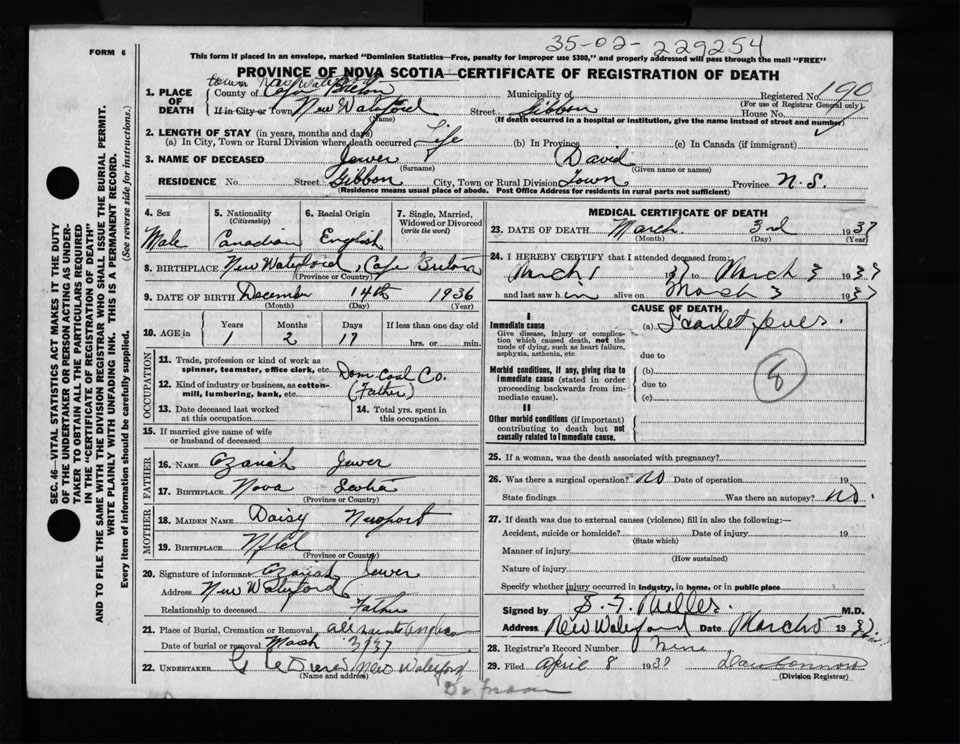 35-02-229254
FORM 6
This form if placed in an envelope, marked "Dominion Statistics—Free, penalty for improper use $300," and properly addressed will pass through the mail "FREE"
PROVINCE OF NOVA SCOTIA—CERTIFICATE OF REGISTRATION OF DEATH
1. PLACE OF DEATH
County of Cape Breton Municipality of Registered No. 190
(For use of Registrar General only)
If in City or Town New Waterford Street Gibbon House No.
(Name)
(If death occurred in a hospital or institution, give the name instead of street and number)
2. LENGTH OF STAY (in years, months and days)
(a) In City, Town or Rural Division where death occurred Life (b) In Province (c) In Canada (if immigrant)
3. NAME OF DECEASED Jewer David
(Surname) (Given name or names)
RESIDENCE No. Street Gibbon City, Town or Rural Division Town Province N.S.
(Residence means usual place of abode. Post Office Address for residents in rural parts not sufficient)
4. Sex 5. Nationality (Citizenship) 6. Racial Origin 7. Single, Married, Widowed or Divorced (write the word)
Male Canadian English
8. BIRTHPLACE New Waterford, Cape Breton
(Province or Country)
9. DATE OF BIRTH December 14th 1936
(Month) (Day) (Year)
10. AGE in Years Months Days If less than one day old
1 2 17 hrs. or min.
OCCUPATION
11. Trade, profession or kind of work as spinner, teamster, office clerk, etc. Dom. Coal Co.
12. Kind of industry or business, as cotton-mill, lumbering, bank, etc. (Father)
13. Date deceased last worked at this occupation
14. Total yrs. spent in this occupation
15. If married give name of wife or husband of deceased
FATHER
16. NAME Azariah Jewer
17. BIRTHPLACE Nova Scotia
(Province or Country)
MOTHER
18. MAIDEN NAME Daisy Newport
19. BIRTHPLACE Nfld
(Province or Country)
20. Signature of informant Azariah Jewer
Address New Waterford
Relationship to deceased Father
21. Place of Burial, Cremation or Removal All Saints Anglican
Date of burial or removal March 3
22. UNDERTAKER New Waterford
(Name and address)
MEDICAL CERTIFICATE OF DEATH
23. DATE OF DEATH March 3rd 1937
(Month) (Day) (Year)
24. I HEREBY CERTIFY that I attended deceased from:
March 1 37 to March 3 1937
and last saw him alive on March 3 1937
CAUSE OF DEATH
I
Immediate cause
Give disease, injury or complication which caused death, not the mode of dying, such as heart failure, asphyxia, asthenia, etc
(a) Scarlet fever.
due to
Morbid conditions, if any, giving rise to immediate cause (stated in order proceeding backwards from immediate cause).
(b)
due to
(c)
8
II
Other morbid conditions (if important) contributing to death but not causally related to immediate cause.
25. If a woman, was the death associated with pregnancy?
26. Was there a surgical operation? No Date of operation 19
State findings Was there an autopsy? No.
27. If death was due to external causes (violence) fill in also the following:—
Accident, suicide or homicide? Date of injury 19
(State which)
Manner of injury
(How sustained)
Nature of injury
Specify whether injury occurred in industry, in home, or in public place
Signed by M.D.
Address New Waterford Date March 5 1937
28. Registrar's Record Number Nine
29. Filed April 8 1937
(Division Registrar)
SEC. 46—VITAL STATISTICS ACT MAKES IT THE DUTY
OF THE UNDERTAKER OR PERSON ACTING AS UNDERTAKER TO OBTAIN ALL THE PARTICULARS REQUIRED
IN THE "CERTIFICATE OF REGISTRATION OF DEATH"
AND TO FILE THE SAME WITH THE DIVISION REGISTRAR WHO SHALL ISSUE THE BURIAL PERMIT.
WRITE PLAINLY WITH UNFADING INK. THIS IS A PERMANENT RECORD.
Every item of information should be carefully supplied. (See reverse side for instructions.)